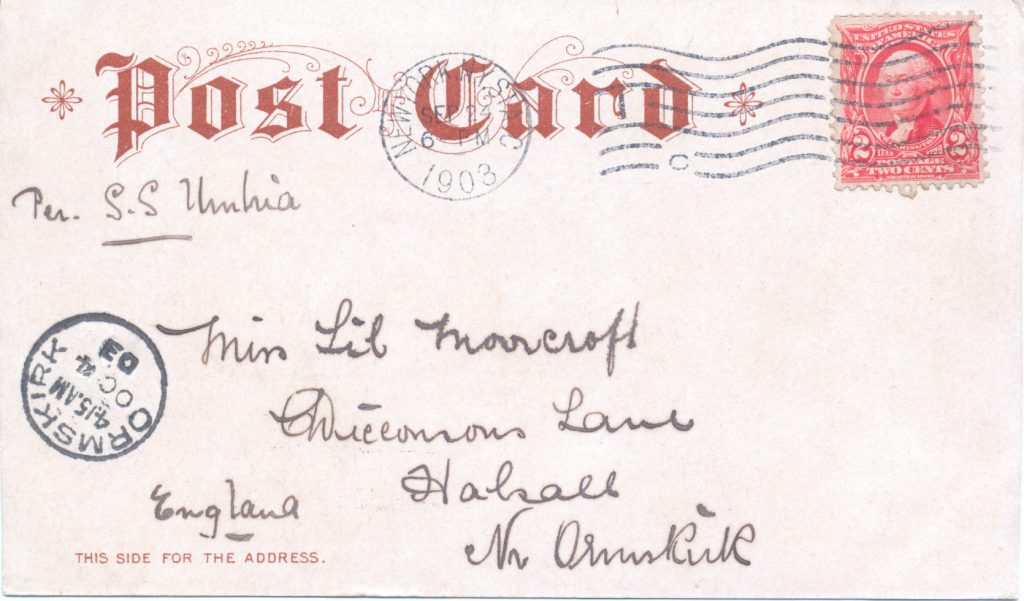 Post Card
NEW YORK, N.Y. STA. C
SEP 24
6 PM
1903
C
UNITED STATES
OF AMERICA
2 2
POSTAGE
TWO CENTS
SERIES 1902
Per. S.S Umbria
ORMSKIRK
4.15.AM
OC 4
03
Miss Lil Moorcroft
Dicconsons Lane
Halsall
England
Nr Ormskirk
THIS SIDE FOR THE ADDRESS.